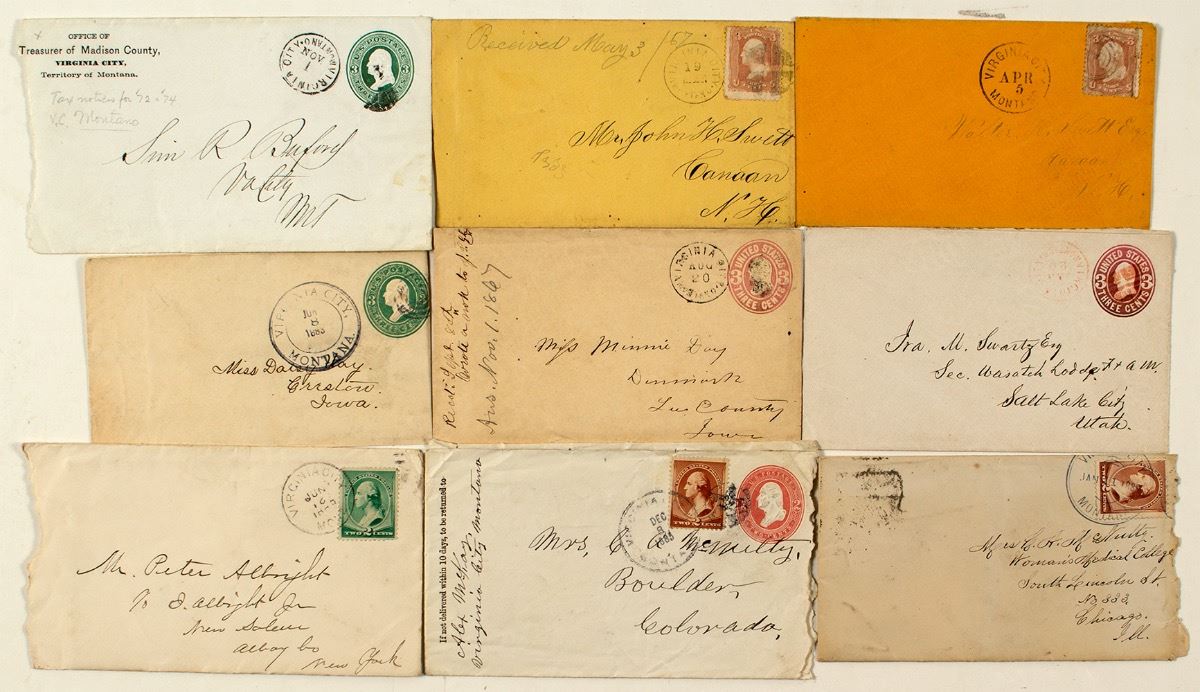 OFFICE OF
Treasurer of Madison County,
VIRGINIA CITY,
Territory of Montana.
Tax notices for '72 & '74
V.C. Montana
VIRGINIA CITY MONTANA
NOV
1
U.S. POSTAGE
Sim R Buford
Va City
MT
Received May 3/67
19
MAR
Mr. John H. Swett
Canaan
N. H.
VIRGINIA CITY
APR
5
MONTANA
3 3
U S
Canaan
N. H.
VIRGINIA CITY.
JUN
8
1883
MONTANA.
U.S. POSTAGE
Miss Daisy Day
Creston
Iowa.
Recd. Sept. 8th
Wrote a
Ans. Nov. 1. 1867
VIRGINIA CITY
AUG
20
MONTANA
UNITED STATES
THREE CENTS
Miss Minnie Day
Denmark
Lee County
Iowa
UNITED STATES
THREE CENTS
Ira. M. Swartz Esq
Sec. Wasatch Lodge F & A M.
Salt Lake City
Utah.
VIRGINIA CITY
JUN
MON
TWO CENTS
Mr. Peter Albright
To J. Albright Jr
New Salem
Albany Co
New York
If not delivered within 10 days, to be returned to
Alex McKay
Virginia City Montana
DEC
8
1883
MONTANA
TWO CENTS
U.S. POSTAGE
Mrs. C A McNulty,
Boulder,
Colorado,
JAN
MONTANA
2
Mrs C. A. McNulty
Woman's Medical College
South Lincoln St.
No 333
Chicago.
Ill.